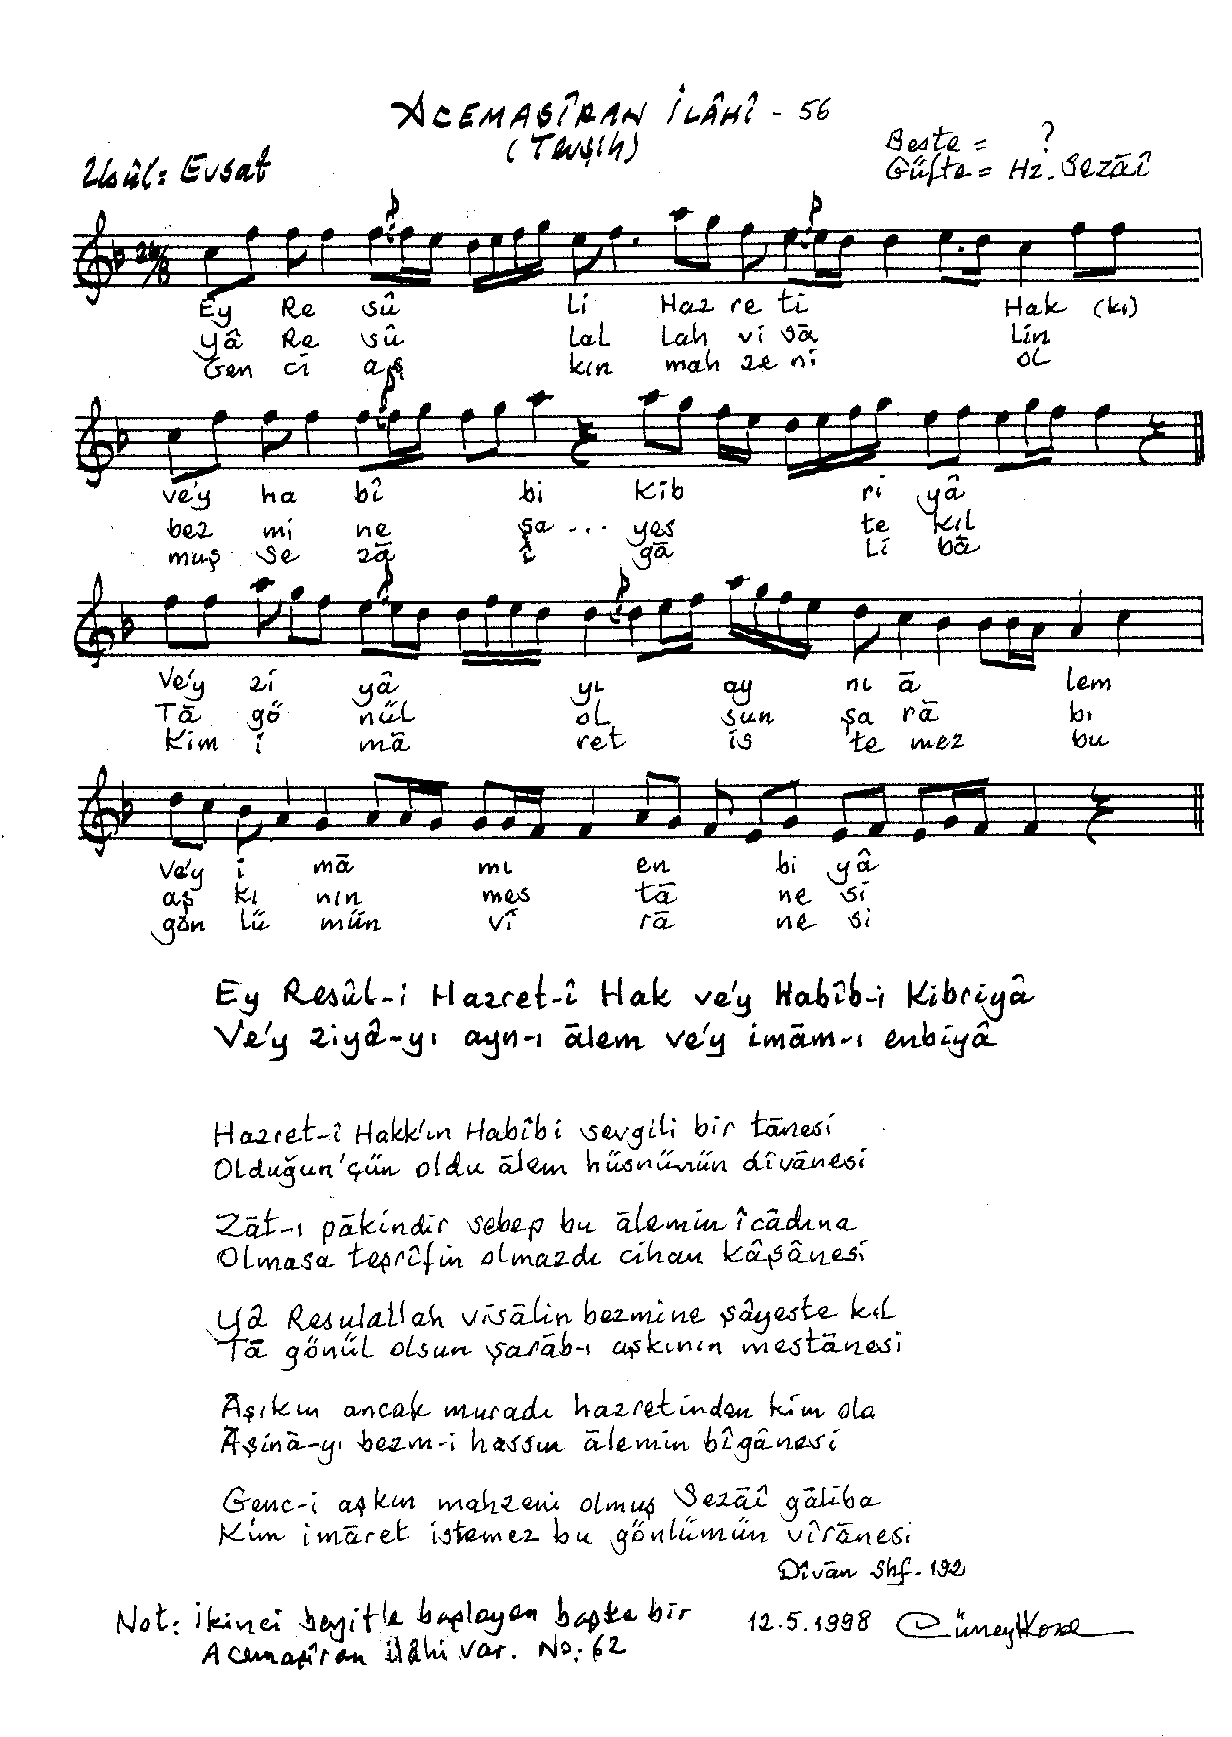 ACEMAŞÎRAN İLÂHÎ - 56
(Tevşih)
Usûl: Evsat
Beste = ?
Güfte = Hz. Sezāî
26/8
Ey Re sû Li Haz re ti Hak (kı)
yâ Re sû Lal Lah vi sā Lin
Gen ci aş kın mah ze ni oL
ve'y ha bî bi Kib ri yâ
bez mi ne şa... yes te kıl
muş Se zā î gā Li bā
Ve'y zi yâ yı ay nı ā lem
Tā gö nül oL sun şa rā bı
Kim i mā ret is te mez bu
ve'y i mā mı en bi yâ
aş kı nın mes tā ne si
gön lü mün vî rā ne si
Ey Resûl-i Hazret-î Hak ve'y Habîb-i Kibriyâ
Ve'y ziyâ-yı ayn-ı ālem ve'y imām-ı enbiyâ
Hazret-î Hakk'ın Habîbi sevgili bir tānesi
Olduğun'çün oldu ālem hüsnünün dîvānesi
Zāt-ı pākindir sebep bu ālemin îcâdına
Olmasa teşrîfin olmazdı cihan kâşânesi
Yâ Resulallah visālin bezmine şâyeste kıl
Tā gönül olsun şarāb-ı aşkının mestānesi
Āşıkın ancak muradı hazretinden kim ola
Āşinā-yı bezm-i hassın ālemin bîgânesi
Genc-i aşkın mahzeni olmuş Sezāî gāliba
Kim imāret istemez bu gönlümün vîrānesi
Dîvān Shf. 192
Not: İkinci beyitle başlayan başka bir
Acemaşîran ilâhi var. No: 62
12.5.1998 Cüneyt Kosal